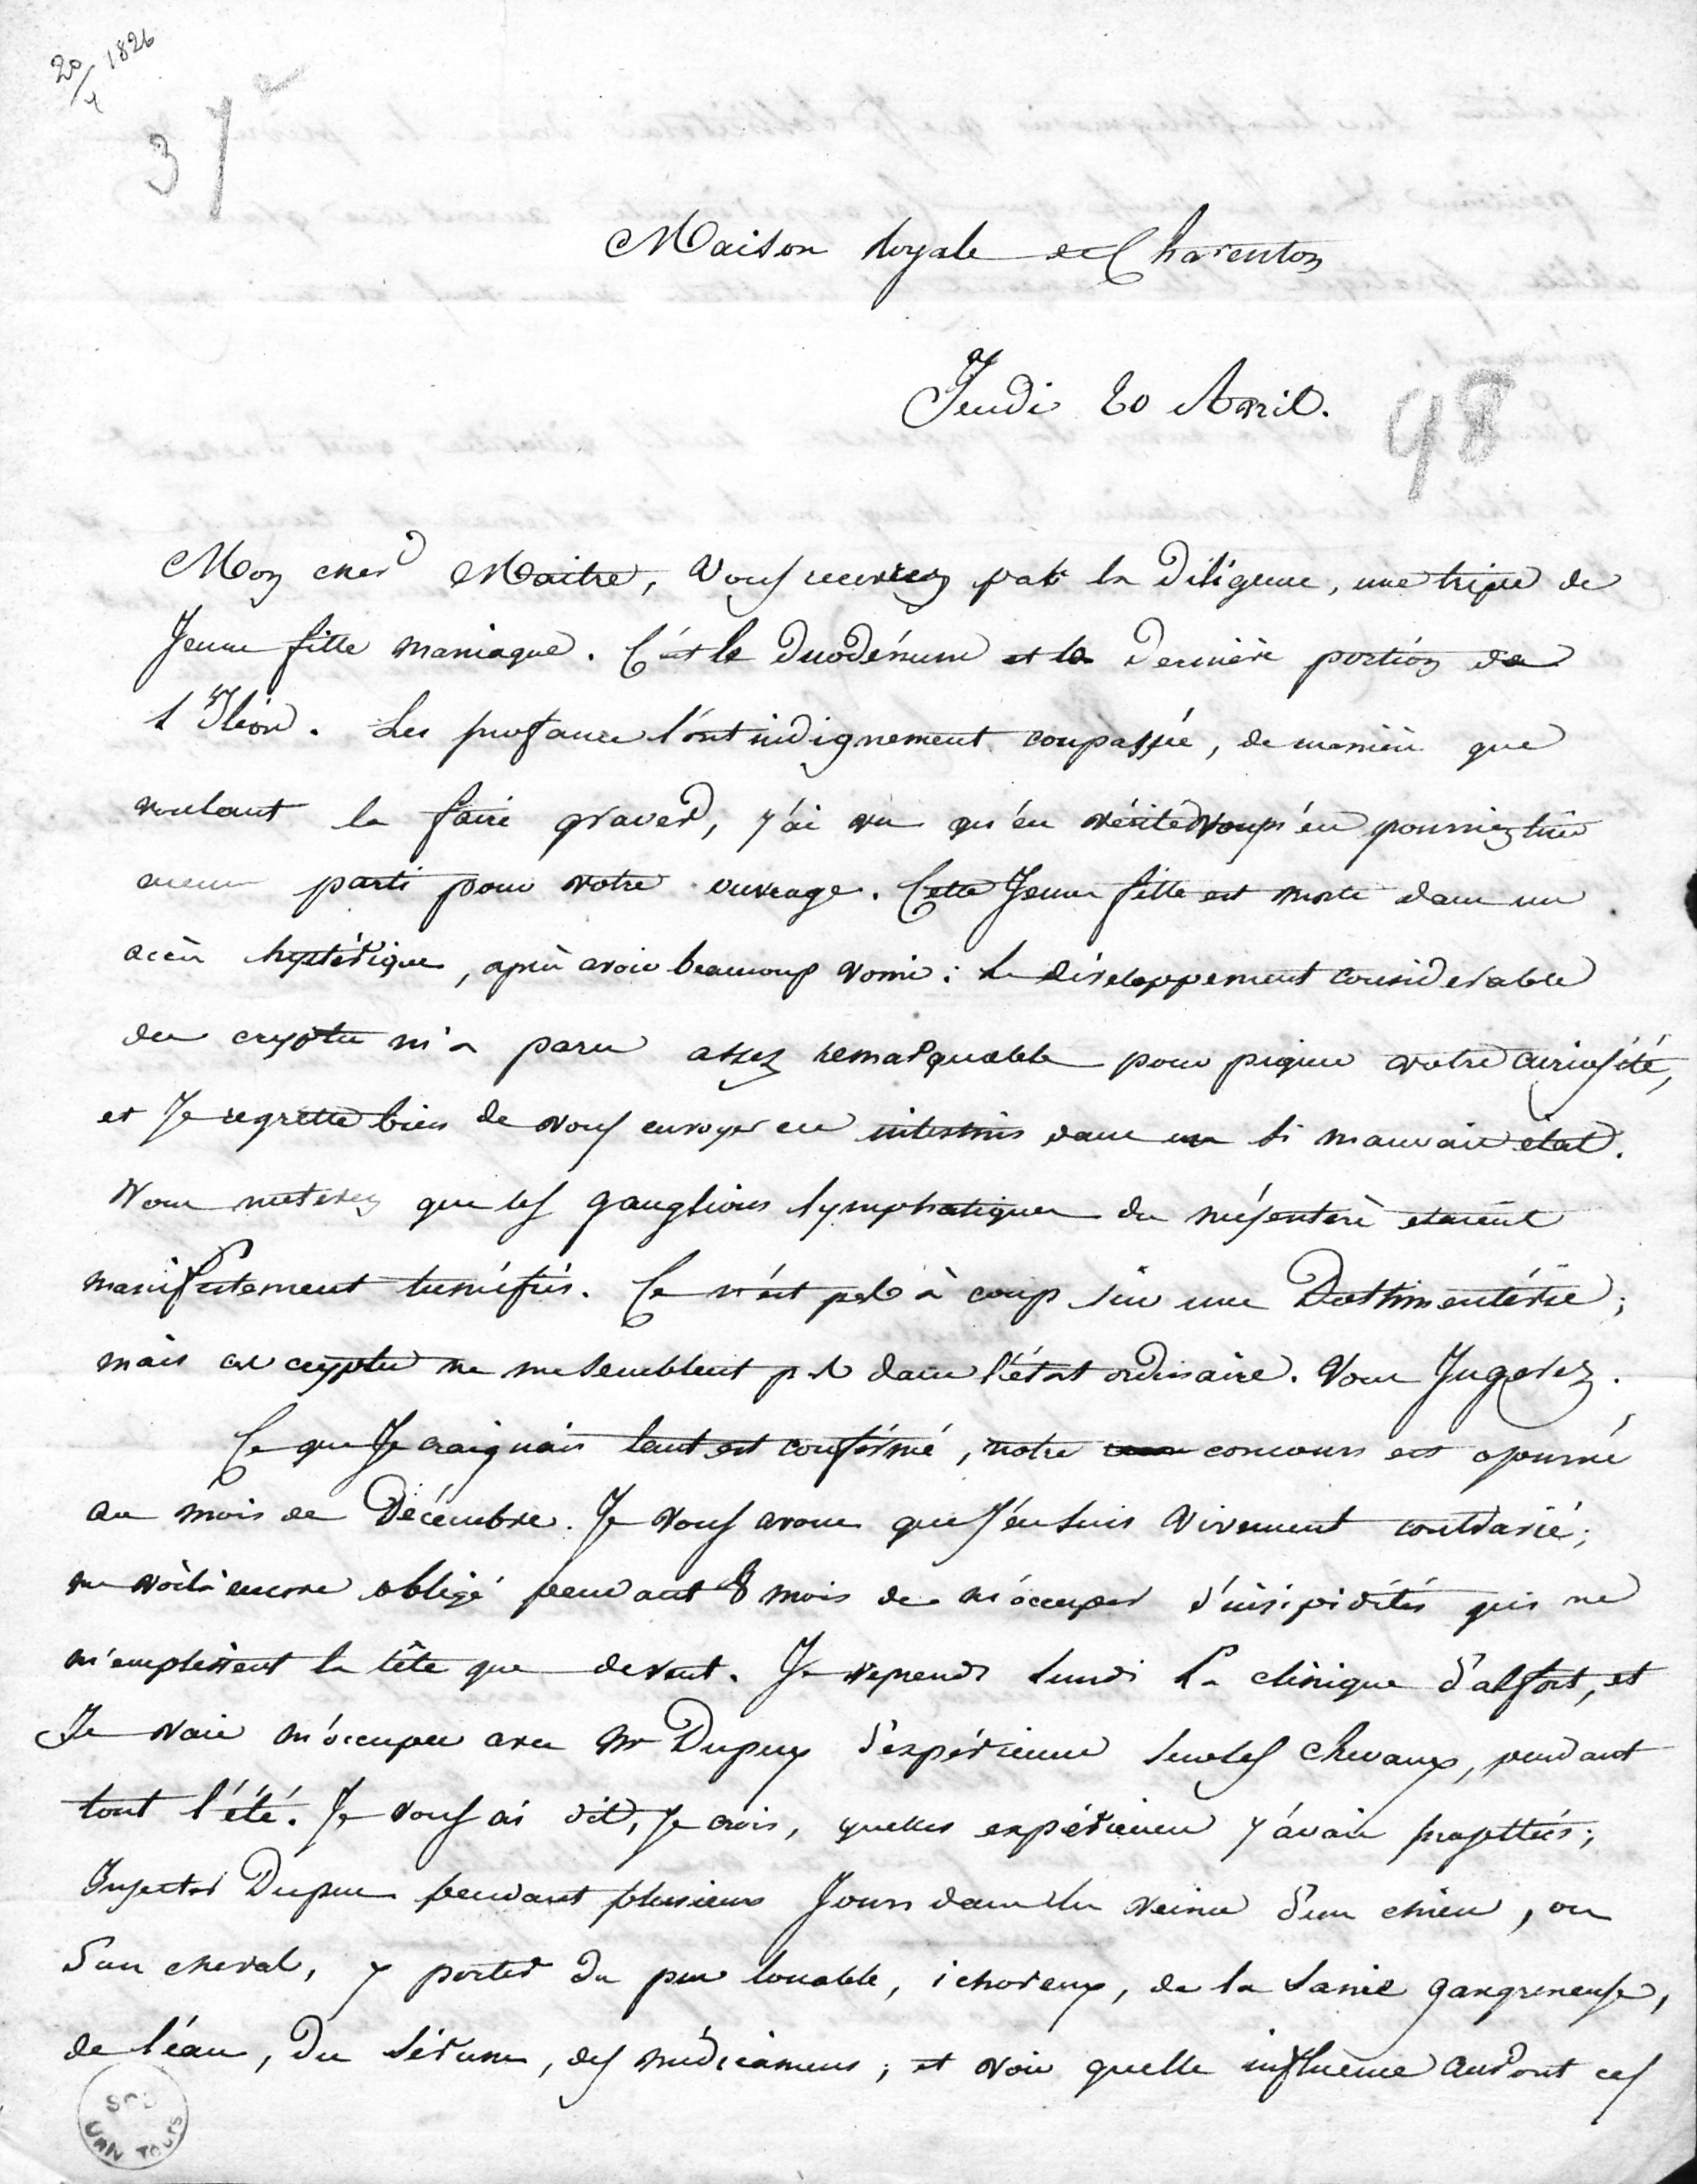 20/4 1826
37e
Maison royale de Charenton
Jeudi 20 Avril.
98
Mon cher Maitre, Vous recevrez par la Diligence, une tripe de
Jeune fille maniaque. C'est le Duodénum et la Dernière portion de
l'Iléon. Les profanes l'ont indignement coupassée, de manière que
voulant la faire graver, j'ai vu qu'en vérité vous n'en pourriez tirer
aucun parti pour votre ouvrage. Cette Jeune fille est morte dans un
accès hystérique, après avoir beaucoup vomi: le développement considérable
des cryptes m'a paru assez remarquable pour piquer votre curiosité,
et Je regrette bien de vous envoyer ces intestins dans un si mauvais état.
Vous noterez que les ganglions lymphatiques du mésentère etaient
manifestement tuméfiés. Ce n'est pas à coup sûr une Dothinentérie;
mais ces cryptes ne me semblent pas dans l'état ordinaire. Vous Jugerez.
Ce que Je craignais tant est confirmé, notre concours est ajourné
au mois de Décembre. Je vous avoue que J'en suis vivement contrarié;
me voilà encore obligé pendant 8 mois de m'occuper d'insipidités qui ne
m'emplissent la tête que de vent. Je reprends lundi la clinique d'alfort, et
Je vais m'occuper avec Mr Dupuy d'expériences sur les chevaux, pendant
tout l'été. Je vous ai dit, Je crois, quelles expériences j'avais projettées;
Injecter Du pus pendant plusieurs Jours dans les veines d'un chien, ou
d'un cheval, y porter du pus louable, ichoreux, de la sanie gangreneuse,
de l'eau, Du sérum, des médicamens; et voir quelle influence auront ces
SCD
UNIV TOURS